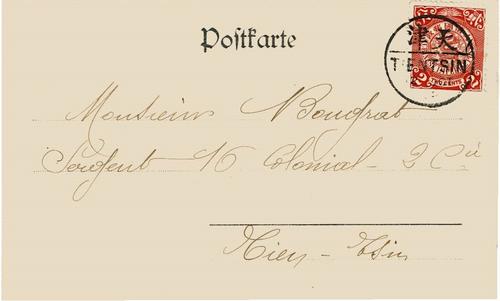 Postkarte
天津
TIENTSIN
2 TWO CENTS 2
Monsieur Bougrat
Sergent 16 Colonial - 2 Cie
Tien-Tsin